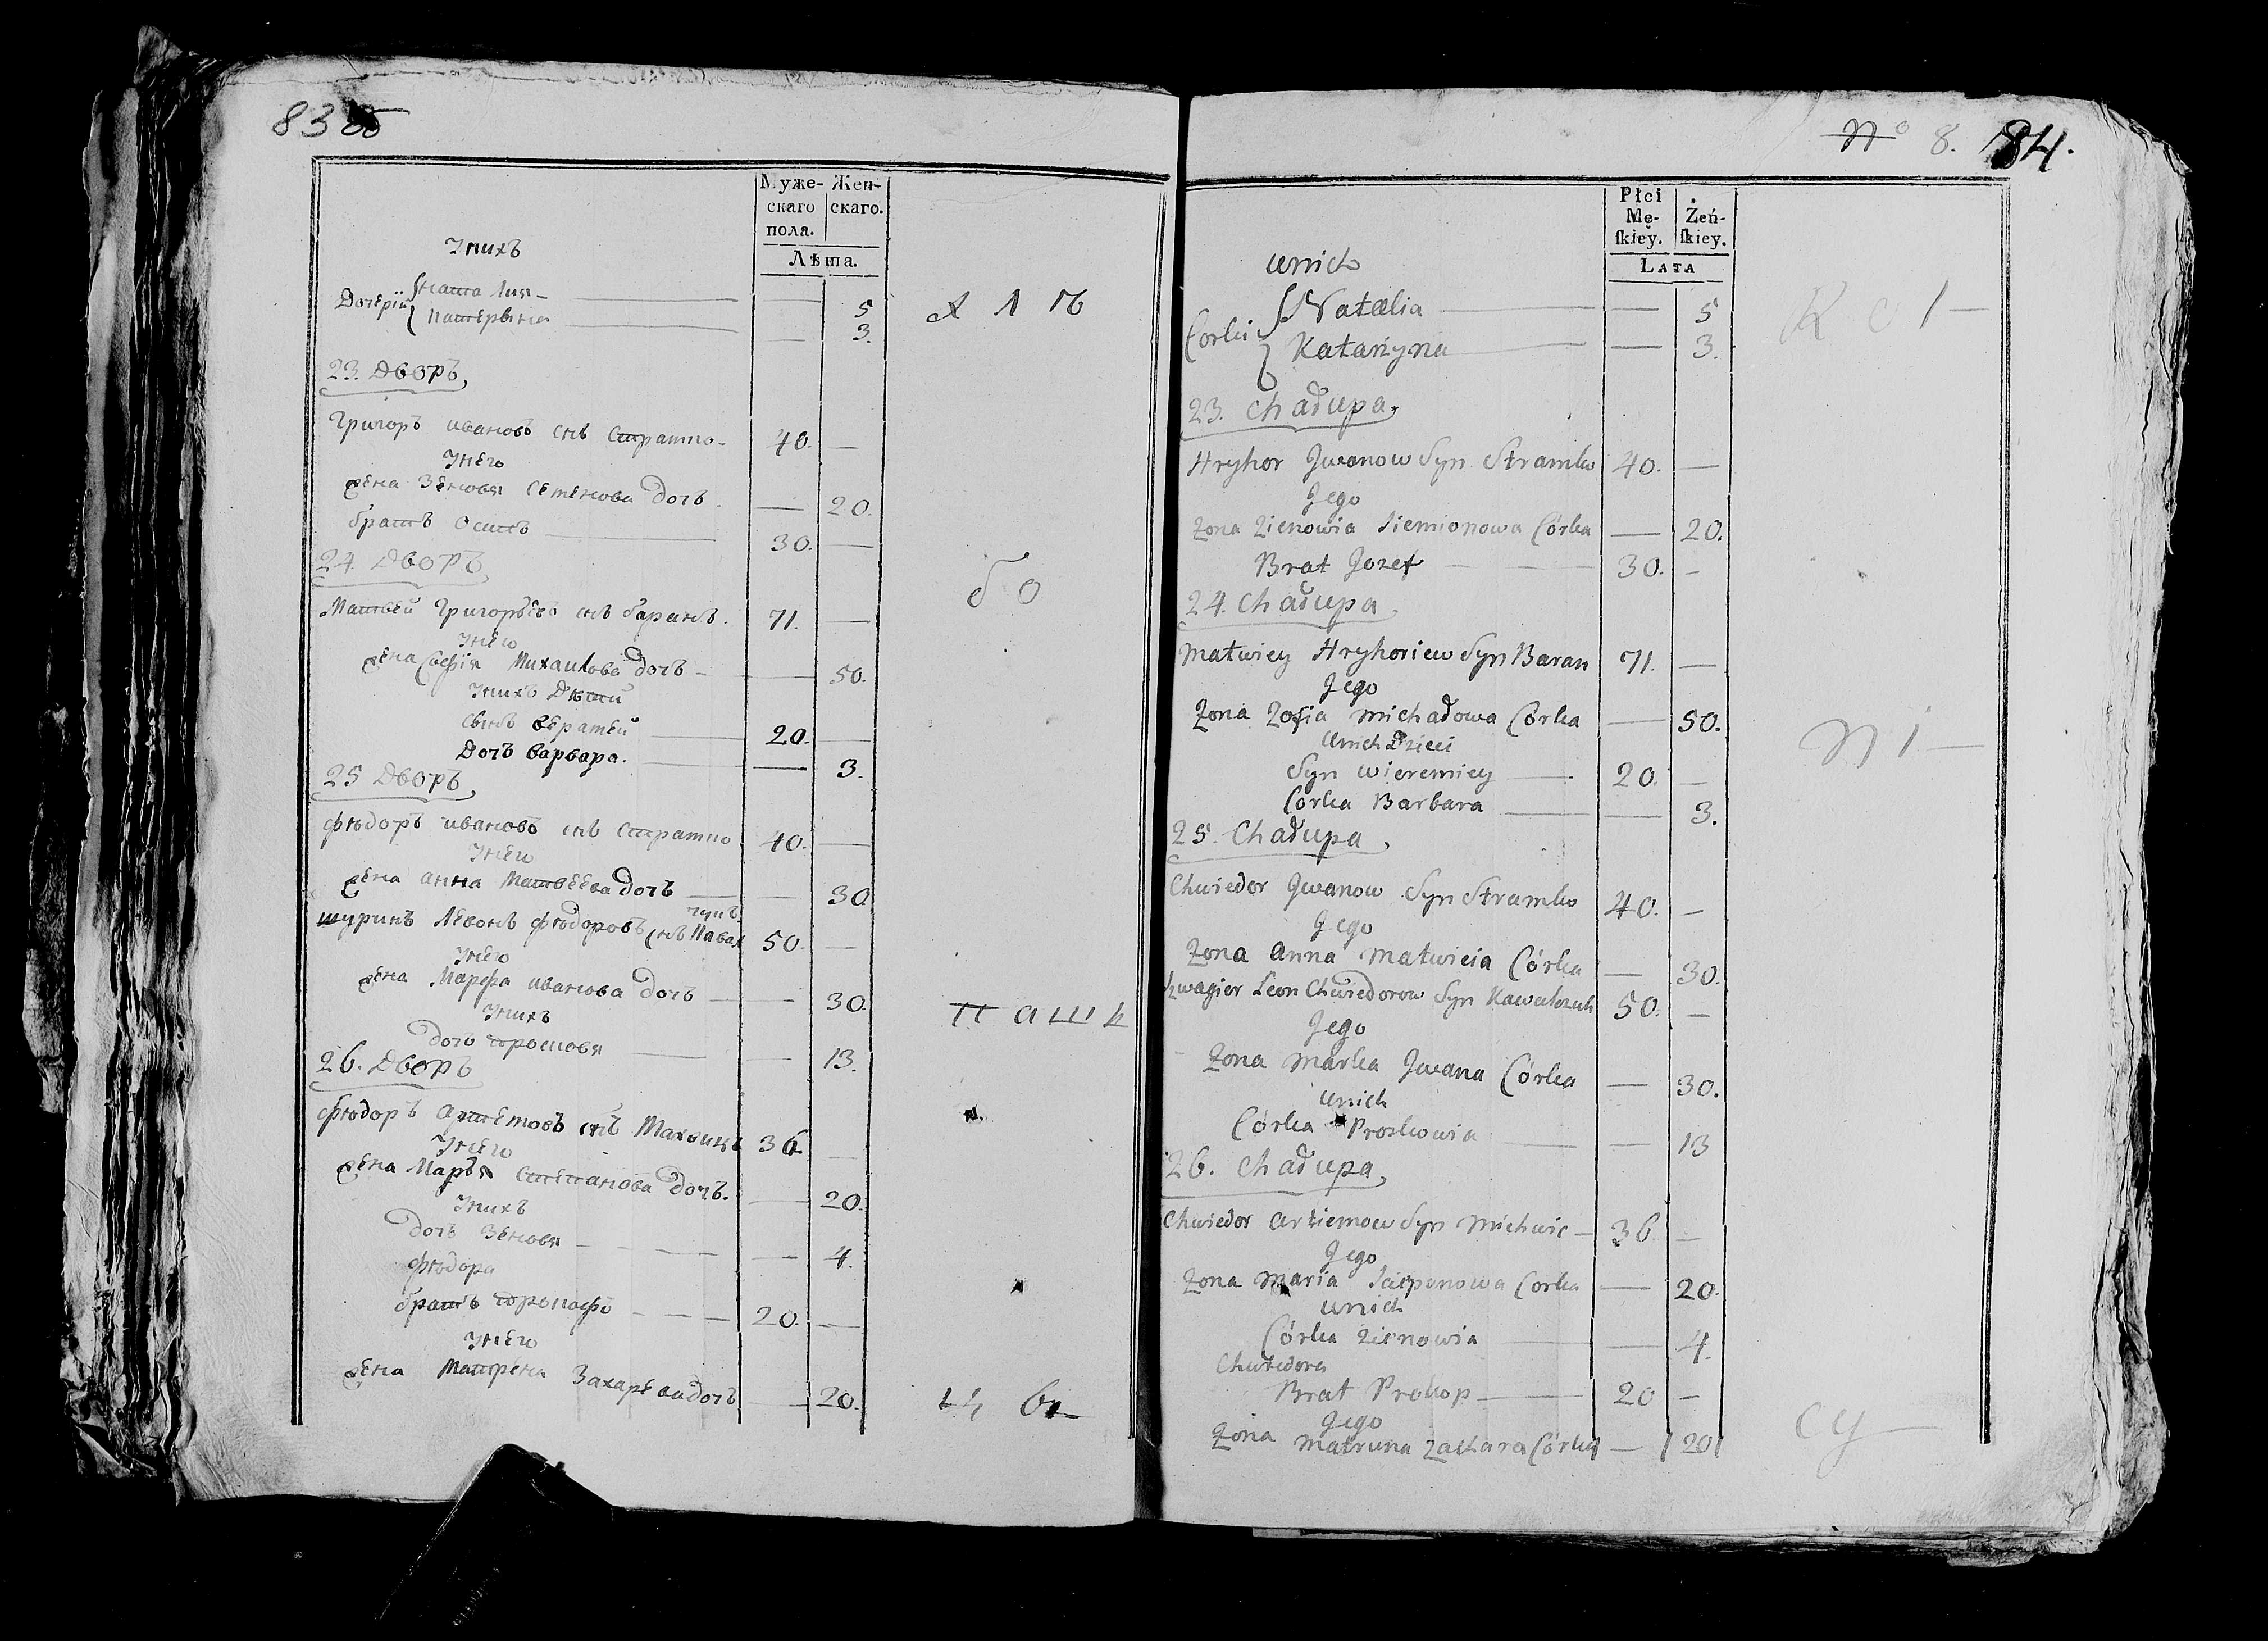 83 об
Муже- Жен-
скаго скаго.
пола.
Лѣта.
Унихъ
Дочерїи
Наталия — — 5
Катерына — — 3.
23. Дворъ,
Григоръ ивановъ снъ Страмко 40. —
Унего
жена Зеновя Семенова дочь — 20.
братъ Осипъ 30. —
24. Дворъ
Матвей Григорьевъ снъ баранъ. 71. —
Унего
жена Софїя Михаилова дочь — 50.
Унихъ Дѣти
сынъ Веремей 20. —
Дочь варвара. — 3.
25 Дворъ,
фѣдоръ ивановъ снъ Страмко 40. —
Унего
жена анна Матвеева дочь — 30
чукъ
шуринъ Левонъ фѣдоровъ снъ Кавал 50. —
Унего
жена Марфа иванова дочь — 30.
Унихъ
дочь просковя — 13.
26. Дворъ
фѣдоръ артемовъ снъ 36 —
Унего
жена Маръя Степанова дочь. — 20.
Унихъ
дочь Зеновя — 4.
фѣдора
братъ прокофъ 20. —
Унего
жена Матрена Захарева дочь — 20.
№ 8. 84.
Płci
Mę-
ſkiey.
Żeń-
ſkiey.
LATA
unich
Corki
Natalia — — 5
Katarzyna — — 3.
23. Chałupa,
Hryhor Jwanow Syn Stramko 40. —
Jego
Zona Zienowia Siemionowa Córka — 20.
Brat Jozef 30. —
24. Chałupa,
Matwiey Hryhoriew Syn Baran 71. —
Jego
Zona Zofia Michałowa Córka — 50.
unich Dzieci
Syn Wieremiey 20. —
Corka Barbara — 3.
25. Chałupa,
Chwiedor Jwanow Syn Stramko 40. —
Jego
Zona Anna Matwieia Córka — 30.
Szwagier Leon Chwiedorow Syn Kawalczuk 50. —
Jego
Zona Marka Jwana Córka — 30.
unich
Córka Proskowia — 13
26. Chałupa,
Chwiedor Artiemow Syn Michwic 36 —
Jego
Zona Maria Sciepanowa Corka — 20.
unich
Córka Zienowia — 4.
Chwiedora
Brat Prokop 20 —
Jego
Zona Matruna Zachara Córka — 20